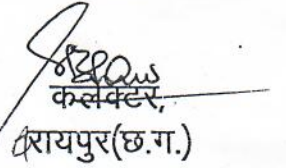 कलेक्टर,
रायपुर(छ.ग.)